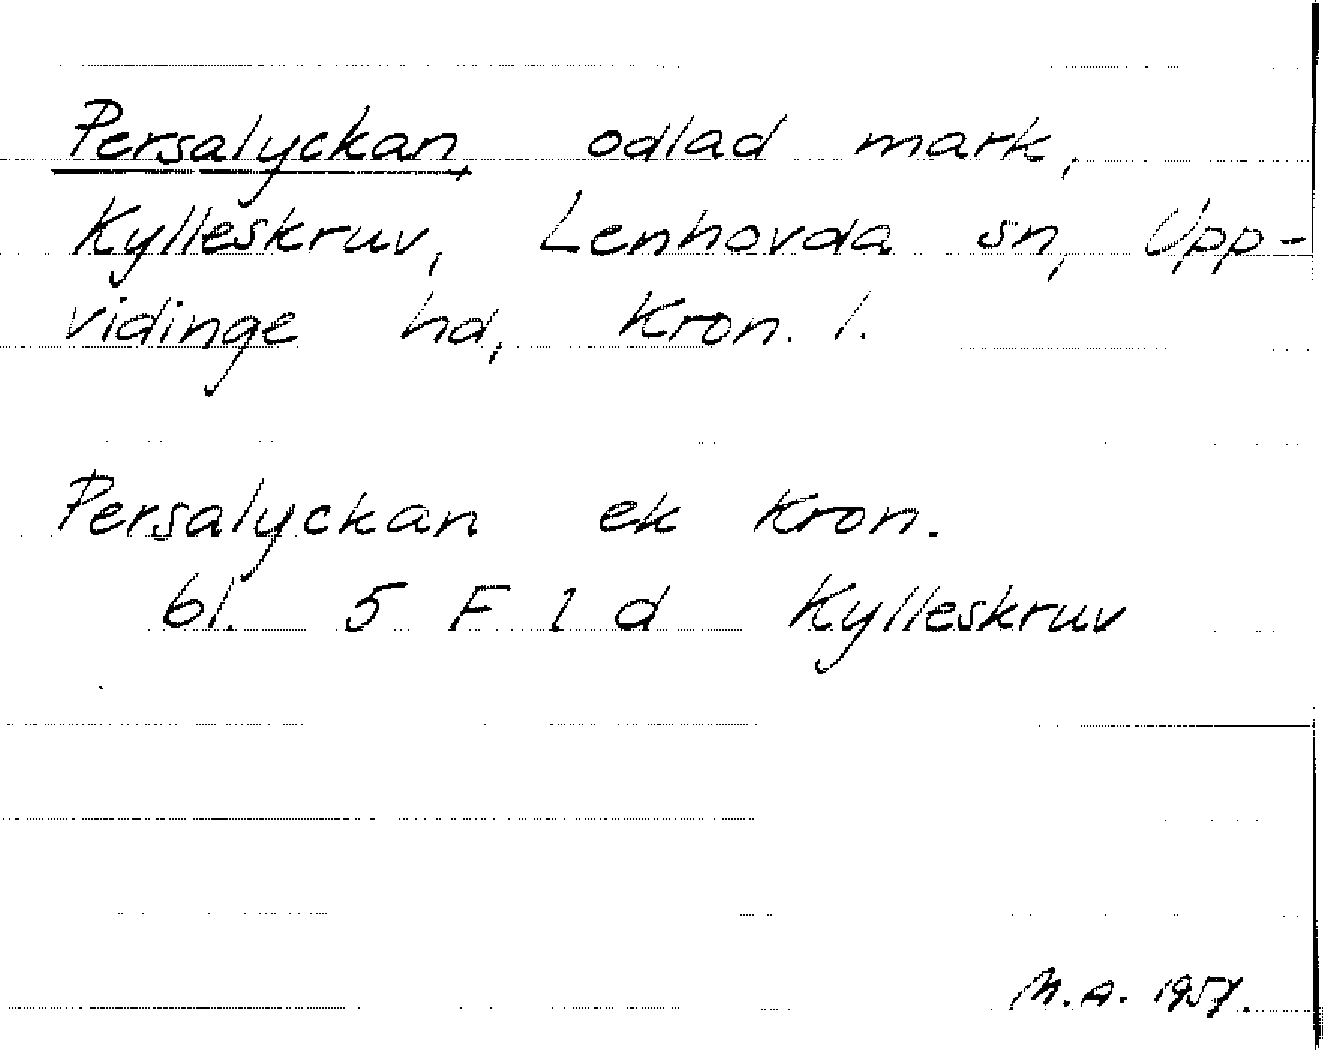 Persalyckan, odlad mark,
Kylleskruv, Lenhovda sn, Upp-
vidinge hd, Kron. l.
Persalyckan ek Kron.
bl. 5 F 1 d Kylleskruv
M.A. 1957.